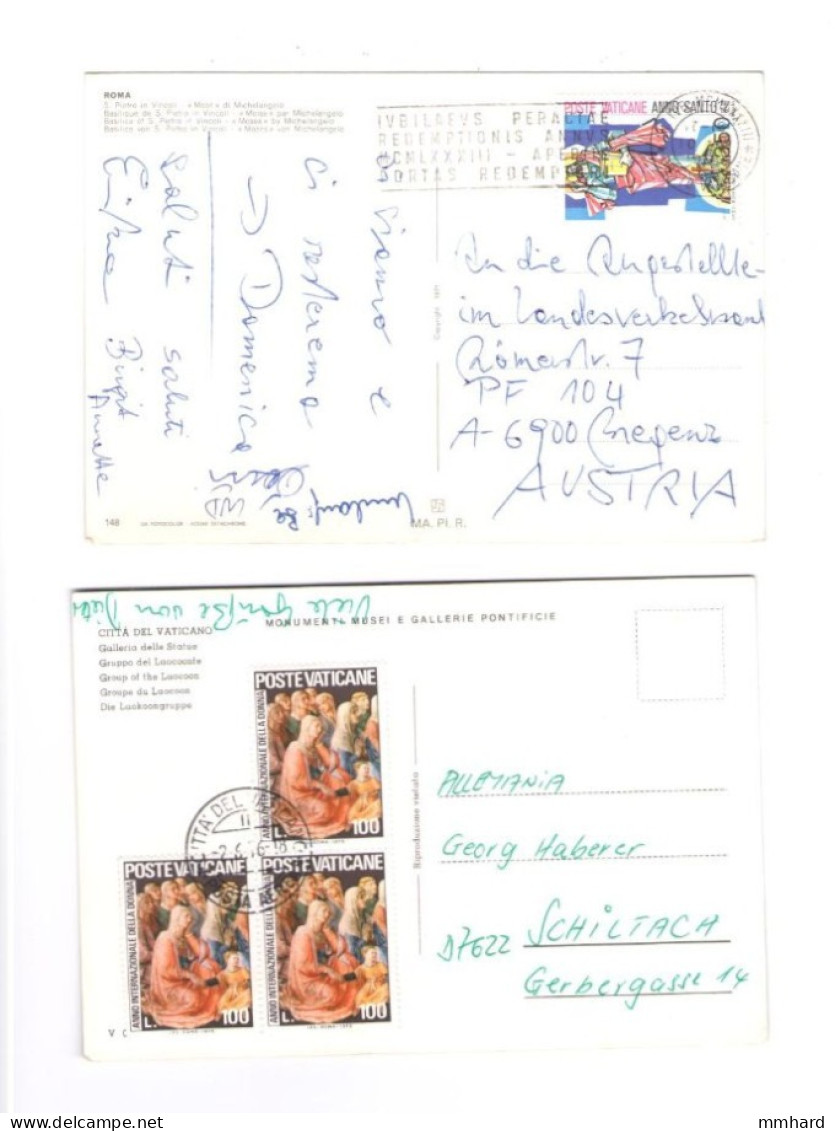 ROMA
S. Pietro in Vincoli - «Mosè» di Michelangelo
Basilique de S. Pietro in Vincoli - «Mosè» par Michelangelo
Basilica of S. Pietro in Vincoli - «Moses» by Michelangelo
Basilica von S. Pietro in Vincoli - «Moses» von Michelangelo
POSTE VATICANE ANNO SANTO
IVBILAEVS PERACTAE
REDEMPTIONIS ANNVS
MCMLXXXIII - APERITE
PORTAS REDEMPTORI
siamo e
ci resteremo
Domenica
saluti saluti
Birgit
Annette
Copyright 1971
An die Angestellte-
im Landesverkehrsamt
Römerstr. 7
PF 104
A-6900 Bregenz
AUSTRIA
148
MA. PI. R.
Viele Grüße von Dieter
CITTÀ DEL VATICANO
Galleria delle Statue
Gruppo del Laocoonte
Group of the Laocoon
Groupe du Laocoon
Die Laokoongruppe
MONUMENTI MUSEI E GALLERIE PONTIFICIE
POSTE VATICANE
ANNO INTERNAZIONALE DELLA DONNA
100
CITTA' DEL
POSTE VATICANE
ANNO INTERNAZIONALE DELLA DONNA
L. 100
POSTE VATICANE
ANNO INTERNAZIONALE DELLA DONNA
L. 100
Riproduzione vietata
ALLEMANIA
Georg Haberer
D7622 SCHILTACH
Gerbergasse 14
V C
mmhard